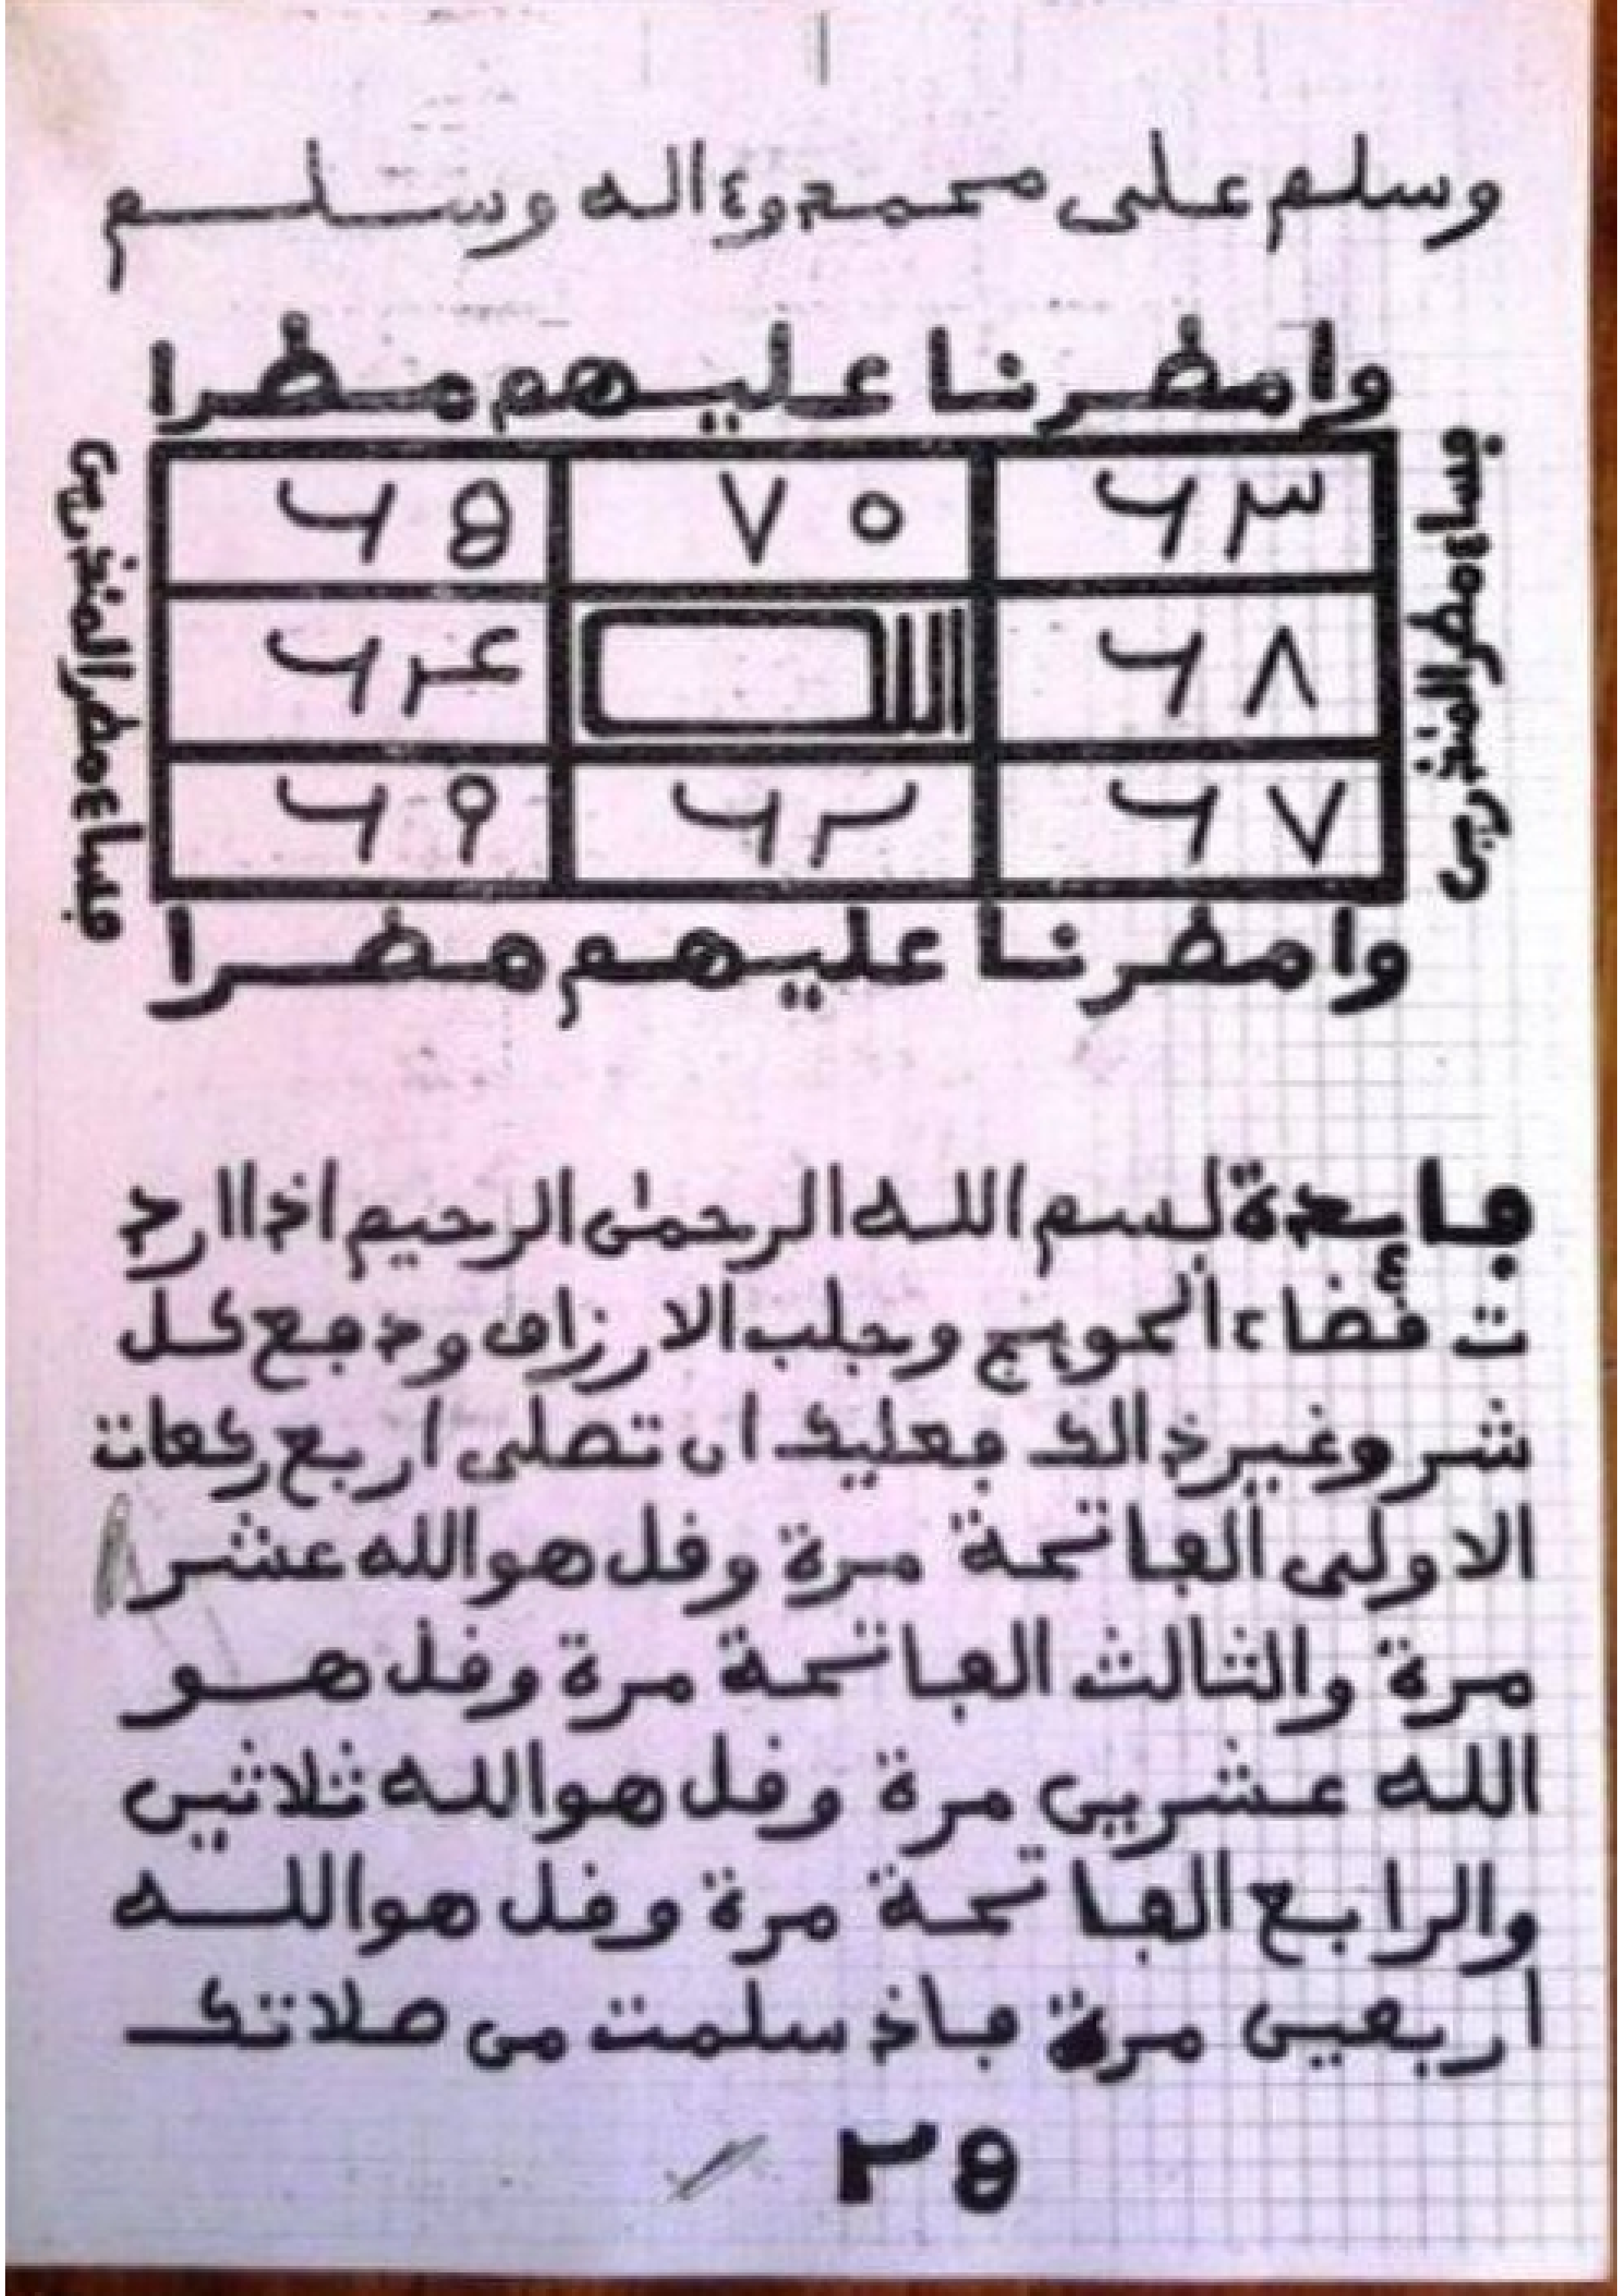 وسلم على محمد وءاله وسلم
وامطرنا عليهم مطرا
٦٣ ٧٠ ٦٥
٦٨ ٦٤
٦٧ ٦٢ ٦٩
فساء مطر المنذرين
وامطرنا عليهم مطرا
فايدة بسم الله الرحمان الرحيم اذا ارد
ت قضاء الحويج وجلب الارزاق ودفع كل
شر وغير ذالك فعليك ان تصلى اربع ركعات
الاولى الفاتحة مرة وقل هو الله عشر
مرة والثالث الفاتحة مرة وقل هو
الله عشرين مرة وقل هو الله ثلاثين
والرابع الفاتحة مرة وقل هو الله
اربعين مرة فاذ سلمت من صلاتك
٢٥